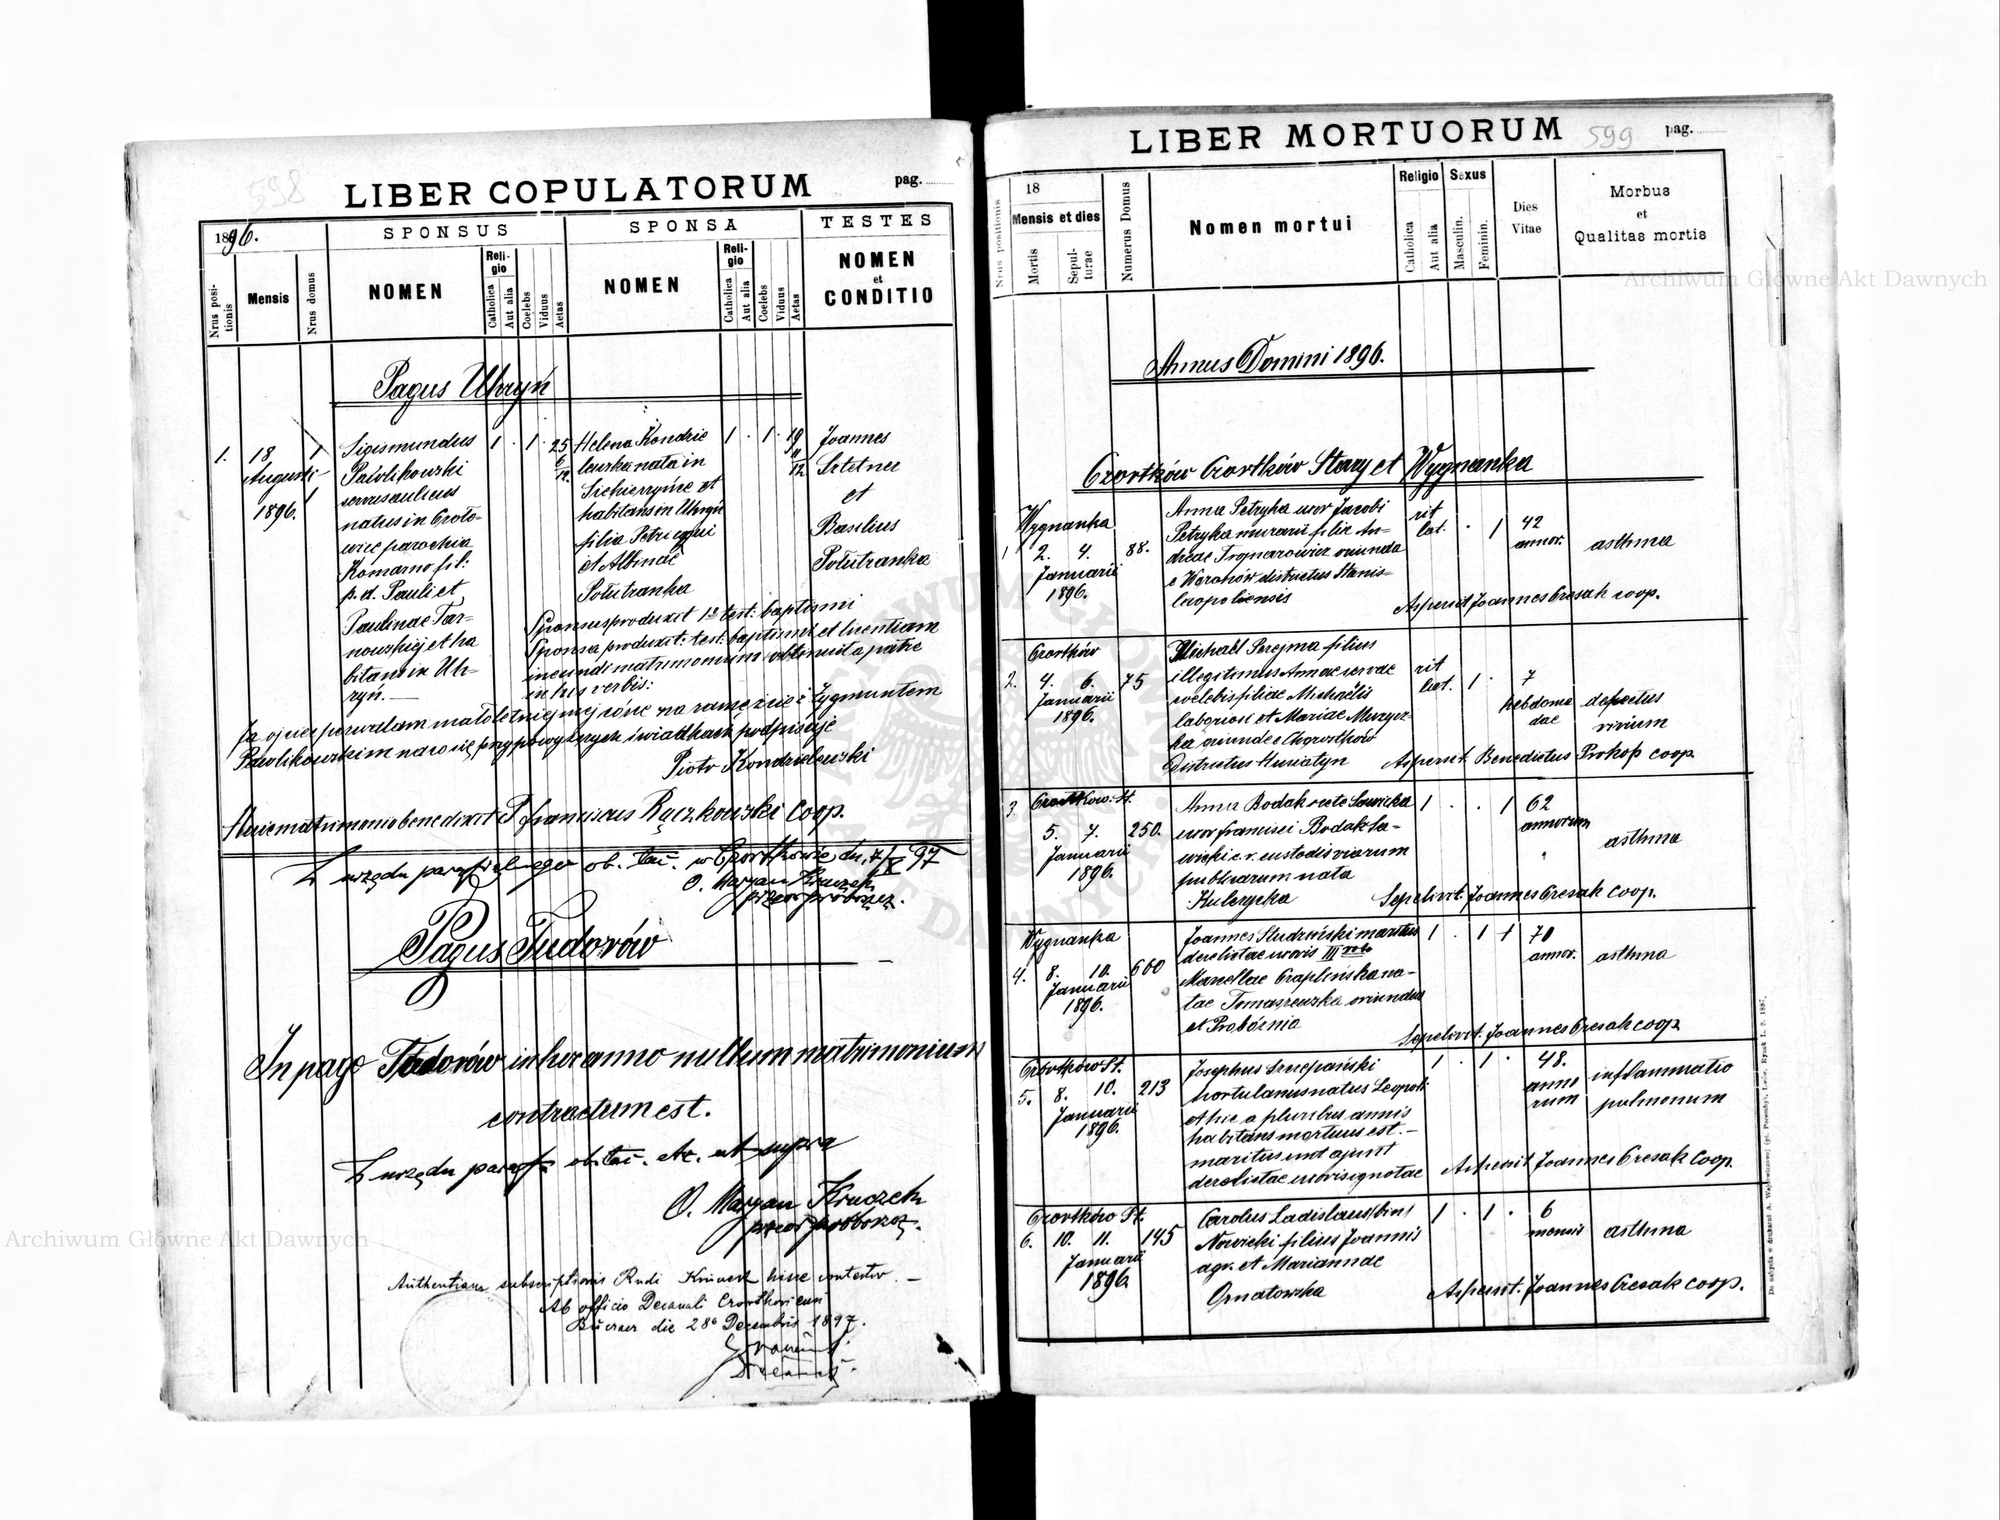 598
LIBER COPULATORUM
pag.
1896.
SPONSUS
SPONSA
TESTES
Nrus positionis
Mensis
Nrus domus
NOMEN
Religio
Catholica
Aut alia
Coelebs
Viduus
Aetas
NOMEN
Religio
Catholica
Aut alia
Coelebs
Viduus
Aetas
NOMEN
et
CONDITIO
Pagus Uhryń
1. 18 Augusti 1896. 1
Sigismundus
Pawlikowski
servus aulicus
natus in
parochia
Komarno fil:
p.d. Pauli et
Paulinae Tar-
nowskiej et ha
bitans in Uh-
ryń.—
1 . 1 . 25 6/12.
Helena Kondzie
lewska nata in
et
habitans in Uhryń
filia Petri
et Albinae
Połutranka
1 . 1 . 19 11/12
Joannes
et
Basilius
Połutranka
Sponsus produxit test: baptismi
Sponsa produxit: test: baptismi et licentiam
ineundi matrimonium obtinuit a patre
in his verbis:
Ja ojciec pozwalam małoletniej mej córce na zamęźcie z Zygmuntem
Pawlikowskim na co się przy powyższych świadkach podpisuję
Piotr Kondzielewski
Huic matrimonio benedixit P. Franciscus Rączkowski Coop.
Z urzędu parafialnego ob. łać. w Czortkowie dn. 7/X 97
O. Maryan Kruczek
przeor proboszcz.
Pagus Tudorów
In pago Tudorów in hoc anno nullum matrimonium
contractum est.
Z urzędu paraf: ob. łać. etc. ut supra
O. Maryan Kruczek
przeor proboszcz.
subscriptionis hisce contestor. —
Ab officio Decanali Czortkoviensi
die 28a Decembris 1897.
LIBER MORTUORUM
599
pag.
Nrus positionis
18
Mensis et dies
Mortis
Sepulturae
Numerus Domus
Nomen mortui
Religio
Catholica
Aut alia
Sexus
Masculin.
Feminin.
Dies
Vitae
Morbus
et
Qualitas mortis
Annus Domini 1896.
Czortków Czortków Stary et Wygnanka
Wygnanka
1 2. 4. 88.
Januarii
1896.
Anna Petryka uxor Jacobi
Petryka murarii filia An-
dreae Trojnarowicz oriunda
e Woronów districtus Stanis-
laopoliensis
rit
lat. . 1
42
annor.
asthma
Aspersit Joannes Cresak coop.
Czortków
2. 4. 6. 75
Januarii
1896.
Michael Perejma filius
illegitimus Annae servae
coelebis filiae Michaëlis
laboriosi et Mariae
oriundae Chorostków
Districtus Husiatyn
rit
lat. 1 .
7
hebdoma
dae
defectus
virium
Aspersit Benedictus Prokop coop.
3. Czortków. St.
5. 7. 250.
Januarii
1896.
Anna Bodak recte Sawicka
uxor Francisci Bodak Sa-
wicki c.r. custodis viarum
publicarum nata
Kulczycka
1 . . 1
62
annorum
asthma
Sepelivit Joannes Cresak coop.
Wygnanka
4. 8. 10. 600
Januarii
1896.
Joannes Studziński maritus
derelictae uxoris III voto
Marcellae Czaplińska na-
tae Tomaszewska oriundus
et Probóżnia
1 . 1 1
70
annor.
asthma
Sepelivit. Joannes Cresak coop
Czortków St.
5. 8. 10. 213
Januarii
1896.
Josephus Szczepański
hortulanus natus Leopoli
et hic a pluribus annis
habitans mortuus est.—
maritus uxt ajunt
derelictae uxoris ignotae
1 . 1 .
48.
anno
rum
inflammatio
pulmonum
Aspersit Joannes Cresak Coop.
Czortków St.
6. 10. 11. 145
Januarii
1896.
Carolus Ladislaus /bin/
Nowicki filius Joannis
agr. et Mariannae
Ornatowska
1 . 1 .
6
mensis
asthma
Aspersit. Joannes Cresak coop.
Archiwum Główne Akt Dawnych
Archiwum Główne Akt Dawnych